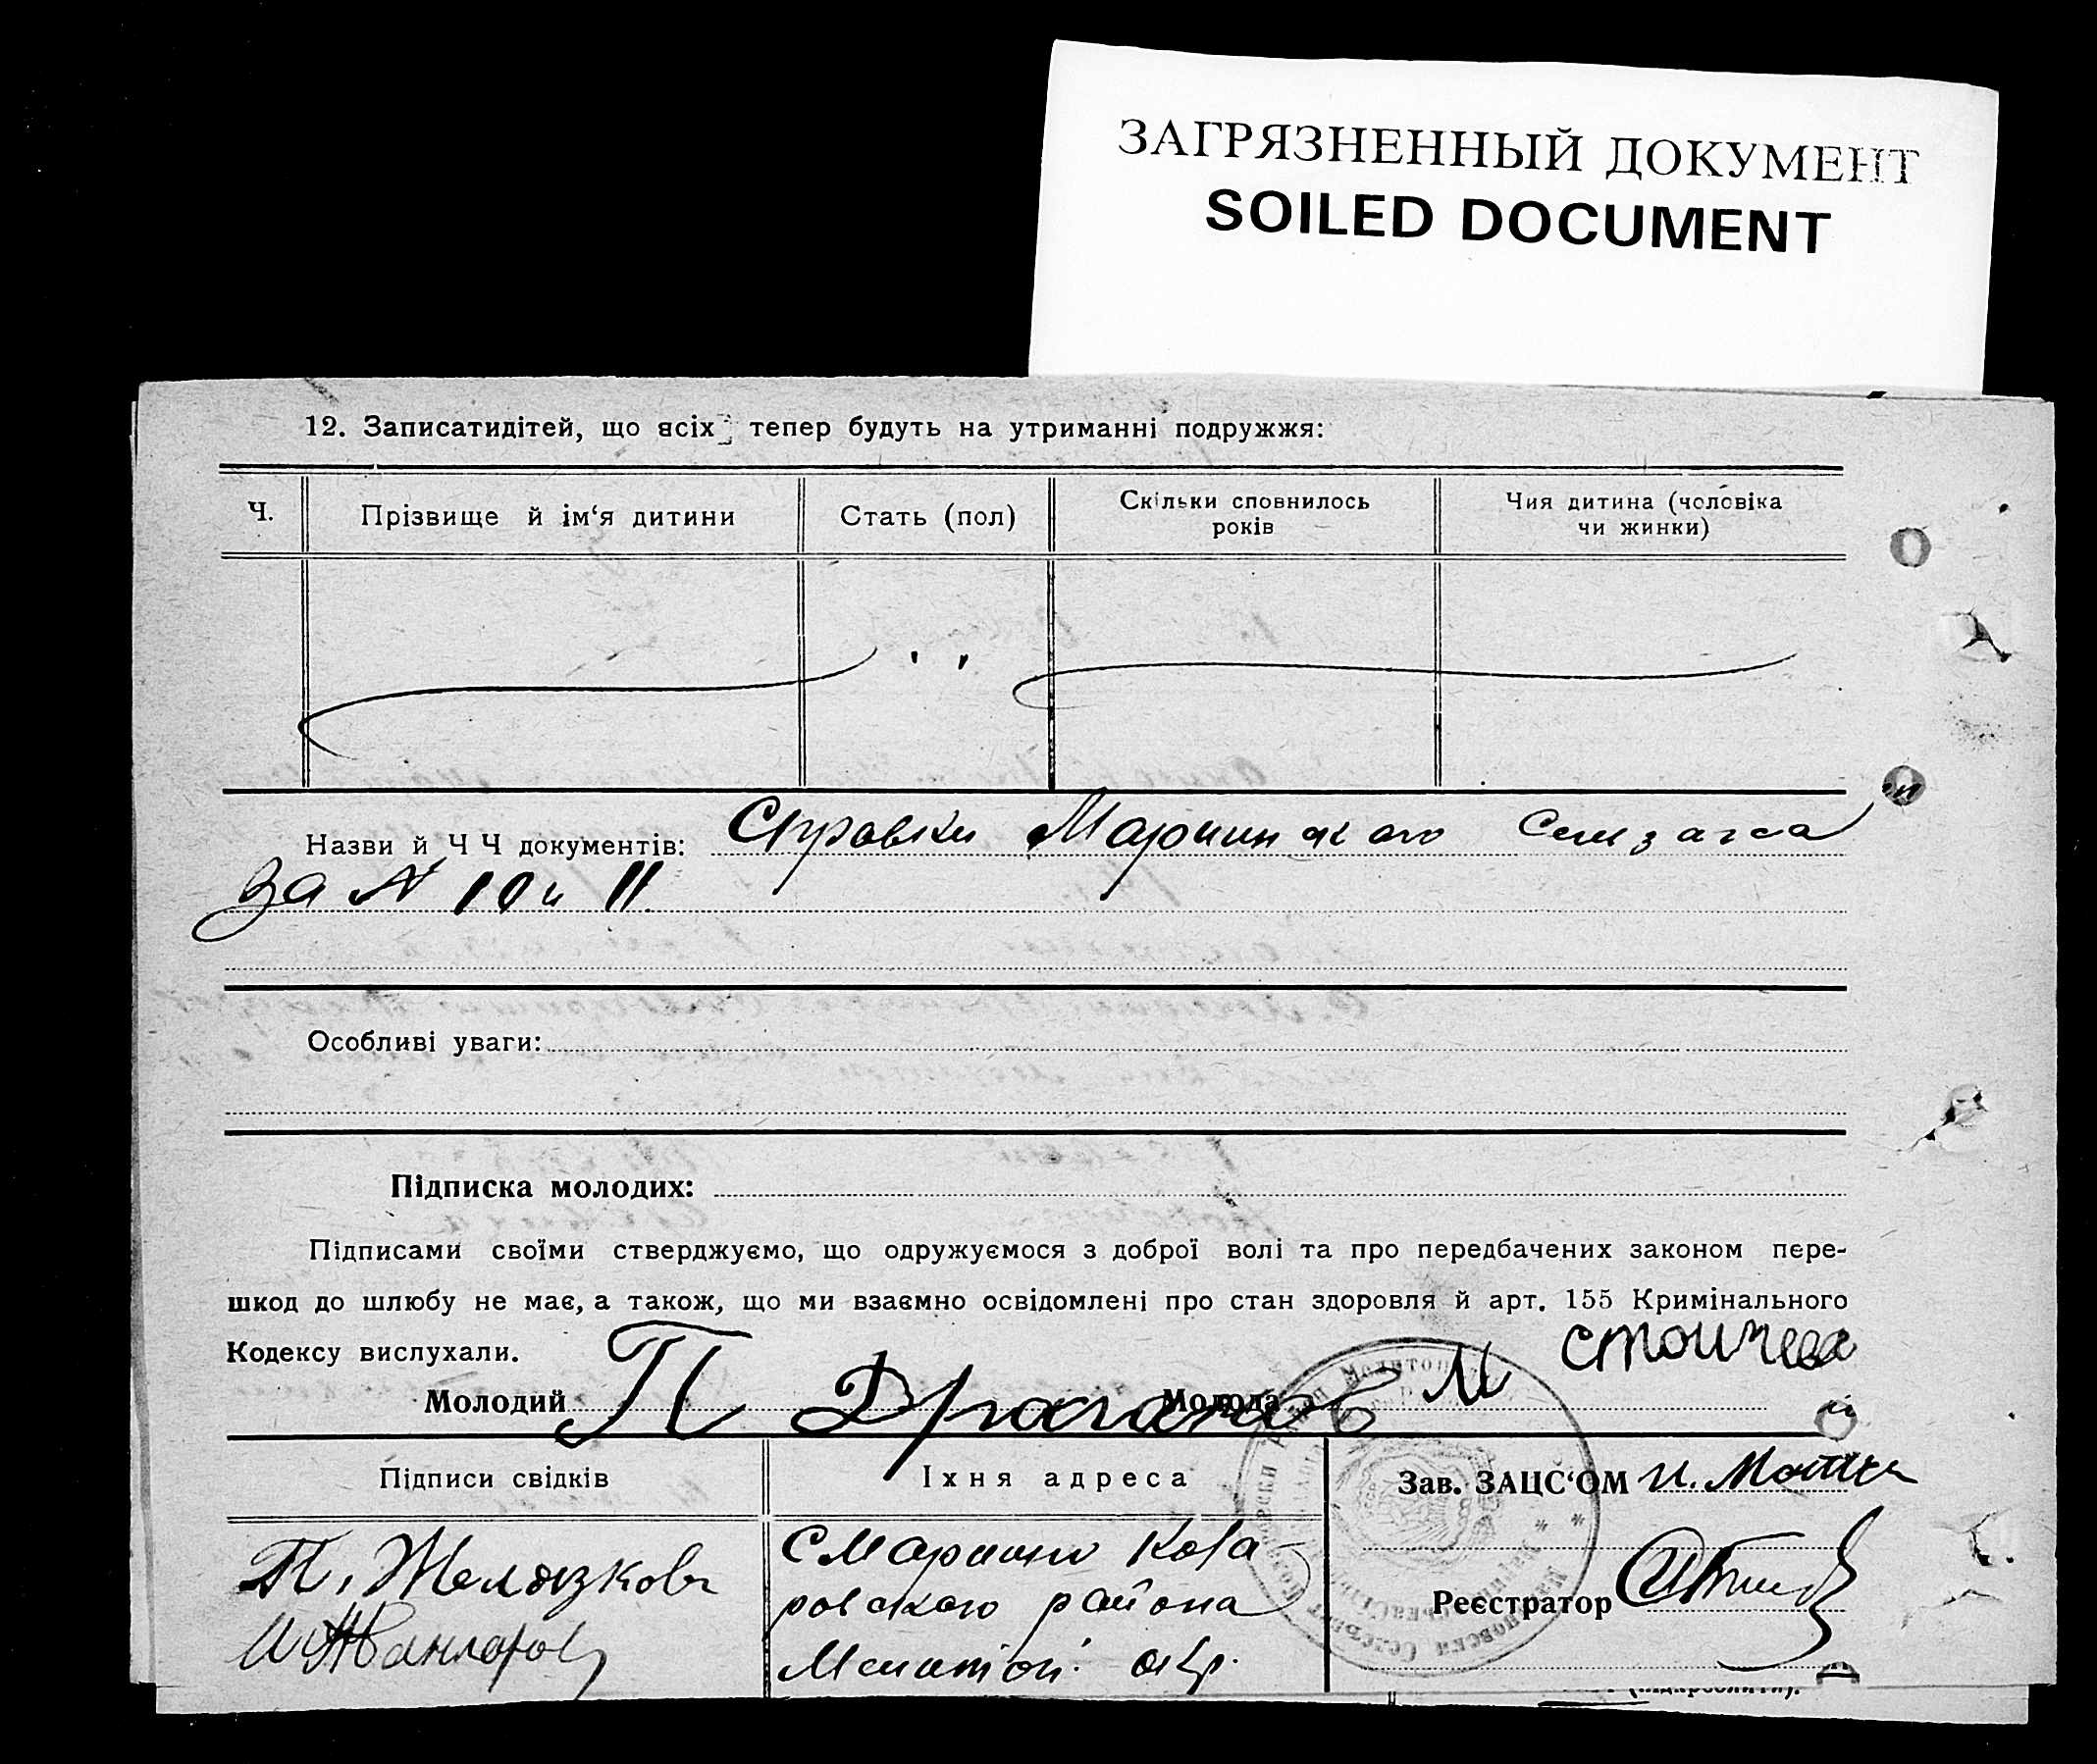 ЗАГРЯЗНЕННЫЙ ДОКУМЕНТ
SOILED DOCUMENT
12. Записатидітей, що всіх тепер будуть на утриманні подружжя:
Ч.
Прізвище й ім‘я дитини
Стать (пол)
Скільки сповнилось
років
Чия дитина (чоловіка
чи жинки)
Назви й Ч Ч документів: Справки Мариинского Сельзагса
за № 10 и 11.
Особливі уваги:
Підписка молодих:
Підписами своїми стверджуємо, що одружуємося з доброї волі та про передбачених законом пере-
шкод до шлюбу не має, а також, що ми взаємно освідомлені про стан здоровля й арт. 155 Кримінального
Кодексу вислухали.
Молодий П Драганов Молода М Стоичева
Підписи свідків
Їхня адреса
Зав. ЗАЦС‘ОМ
П. Желязков
С Марино Кола
ровского района
Мелитоп. окр.
Реєстратор